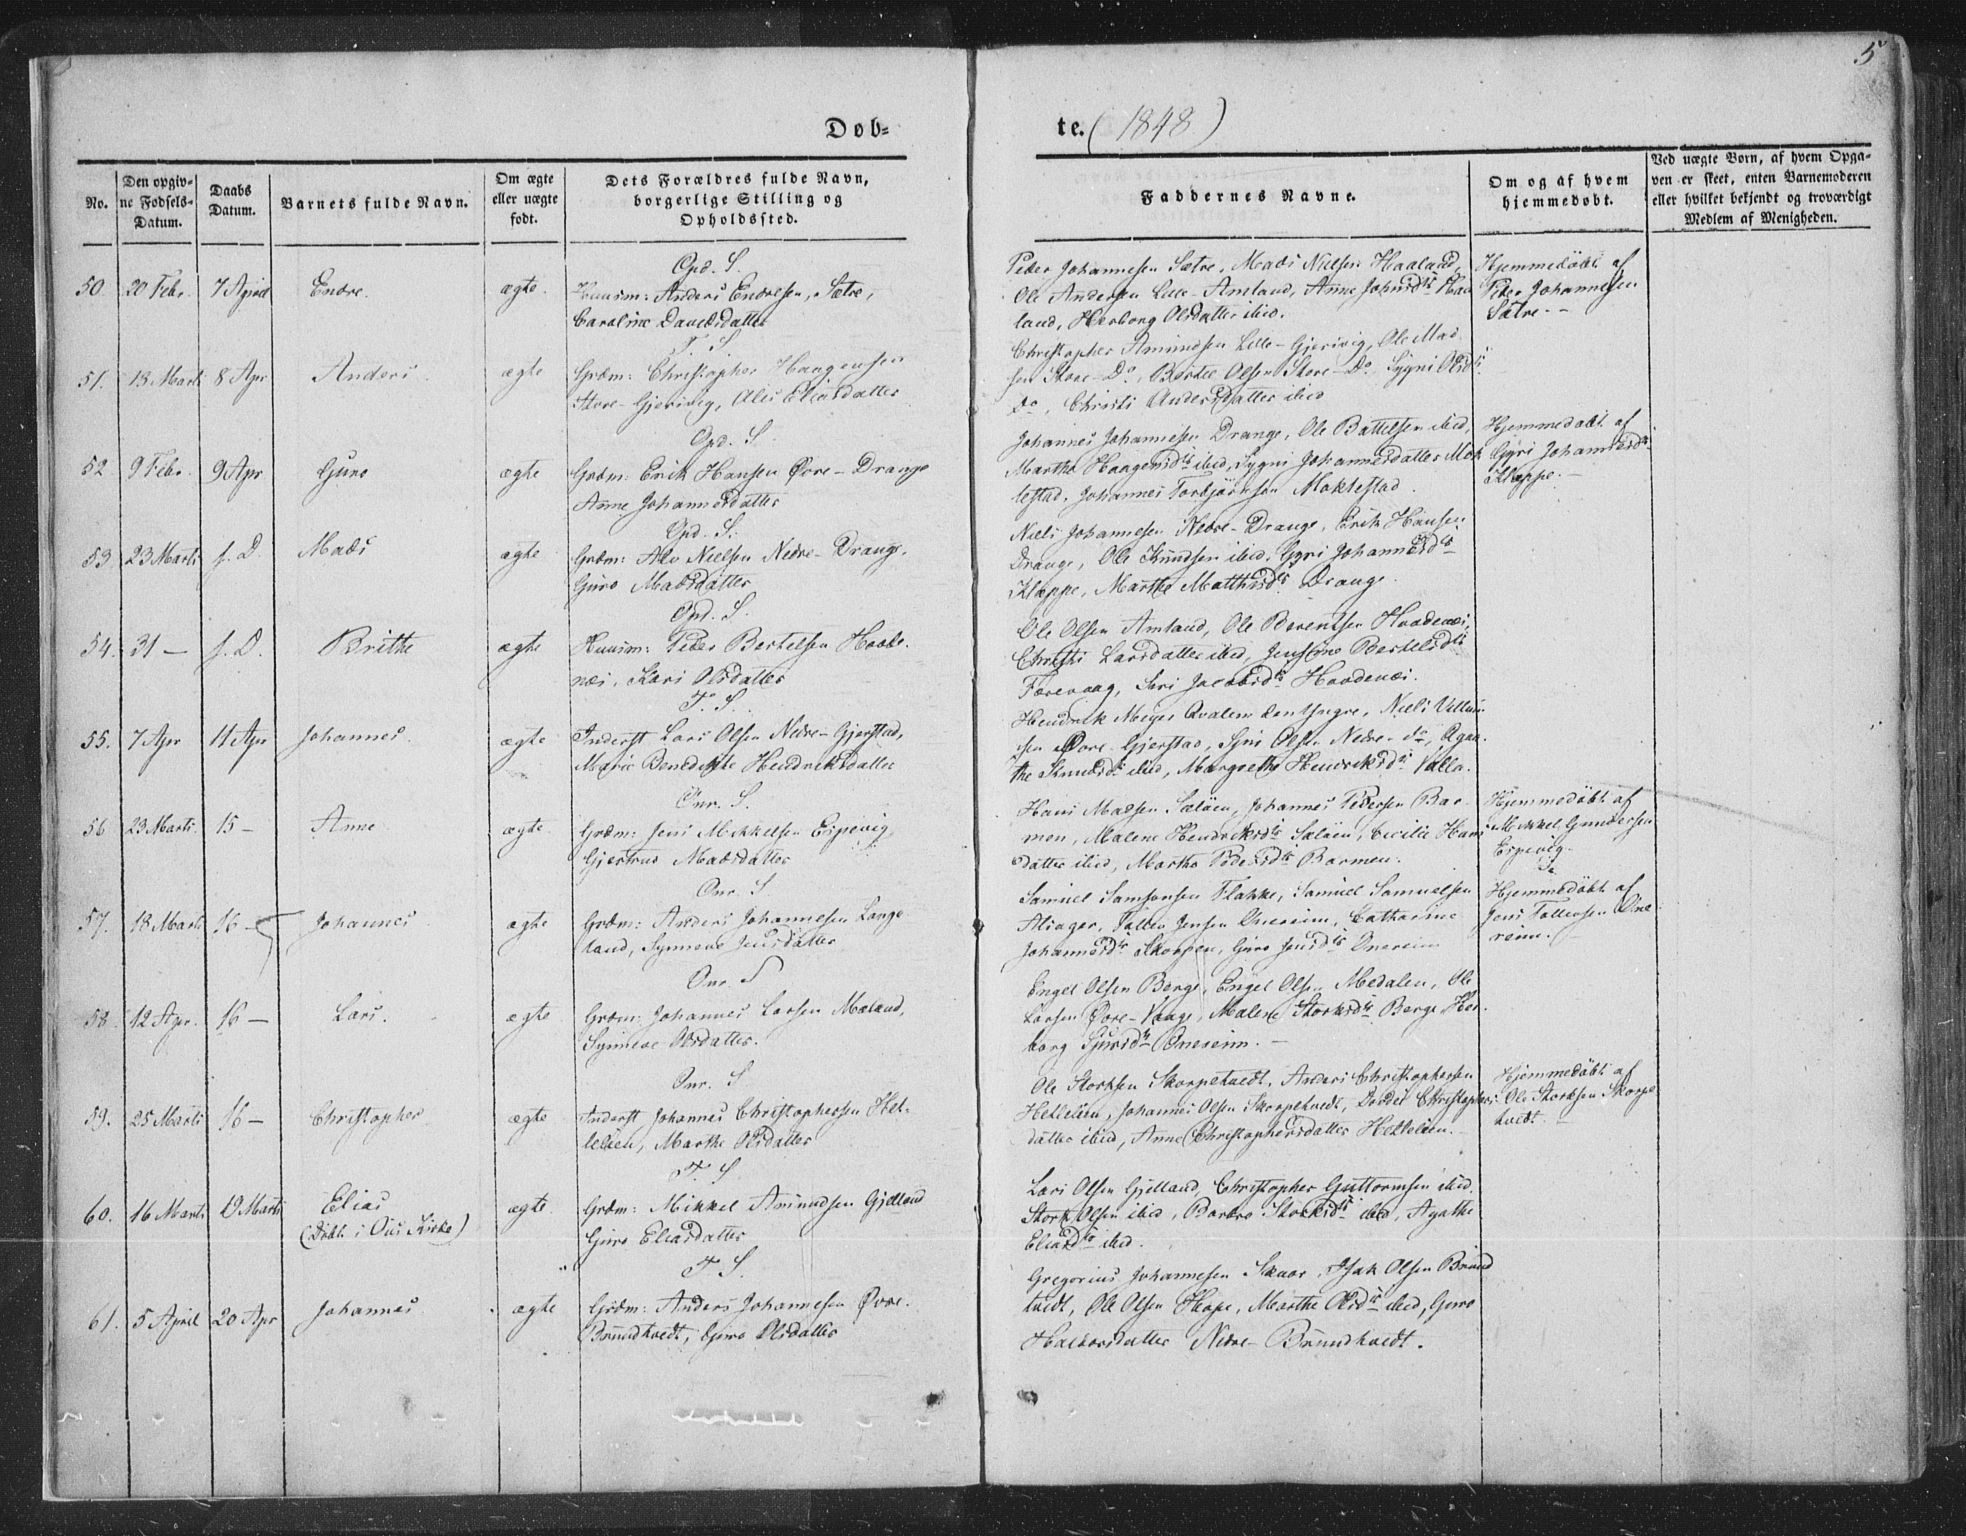 5
Døb-
te. (1848)
No.
Den opgiv-
ne Fødsels-
Datum.
Daabs
Datum.
Barnets fulde Navn.
Om ægte
eller uægte
født.
Dets Forældres fulde Navn,
borgerlige Stilling og
Opholdssted.
Faddernes Navne.
Om og af hvem
hjemmedøbt.
Ved uægte Børn, af hvem Opga-
ven er skeet, enten Barnemoderen
eller hvilket bekjendt og troværdigt
Medlem af Menigheden.
Opd. S.
50. 20 Febr. 7 April Endre. ægte Huusm: Anders Endresen, Sætre,
Caroline Davidsdatter
Peder Johannesen Sætre, Mads Nielsen Haaland,
Ole Andersen Lille-Amland, Anne Johnsdtr Haa
land, Herborg Olsdatter ibid.
Hjemmedøbt af
Peder Johannesen
Sætre. -
T. S.
51. 13 Marti 8 Apr Anders. ægte Grdm: Christopher Haagensen
Store-Gjerivig, Ales Eliasdatter
Christopher Amundsen Lille-Gjerivig, Ole Mad
sen Store-Do, Bertel Olsen Store-Do, Sygni Olsdtr
Do, Christi Andersdatter ibid
Opd. S.
52. 9 Febr. 9 Apr Guro ægte Grdm: Erik Hansen Øvre-Drange
Anne Johannesdatter
Johannes Johannesen Drange, Ole Battelsen ibid,
Martha Haagensdtr ibid, Sygni Johannesdatter Mok
lestad, Johannes Torbjørnsen Moklestad.
Hjemmedøbt af
Gyri Johannesdtr
Kleppe. -
Opd. S.
53. 23 Marti s. D. Mads ægte Grdm: Alv Nielsen Nedre-Drange,
Guro Madsdatter
Niels Johannesen Nedre-Drange, Erik Hansen
Drange, Ole Knudsen ibid, Gyri Johannesdtr
Kleppe, Marthe Matthisdtr Drange.
Opd. S.
54. 31 - s. D. Brithe ægte Huusm: Peder Bertelsen Haade-
næs, Kari Olsdatter
Ole Olsen Amland, Ole Berentsen Haadenæs,
Christi Larsdatter ibid, Bertelsdtr
Færevaag, Jacobsdtr Haadenæs.
T. S.
55. 7 Apr 11 Apr Johannes. ægte Inderst Lars Olsen Nedre-Gjerstad,
Marie Benedikte Hendriksdatter
Hendrik Meyer Qvalem den Yngre, Niels Villum
sen Øvre-Gjerstad, Olsen Nedre-do, Aga-
the Knudsdtr ibid, Margrethe Hendriksdtr Valla.
Onr. S.
56 23 Marti. 15 - Anne ægte Grdm: Jens Mikkelsen Espevig,
Gjertrud Madsdatter
Hans Madsen Sæløen, Johannes Pedersen Bar-
men, Malene Hendriksdtr Sæløen, Cecilie Hans
datter ibid, Martha Pedersdtr Barmen.
Hjemmedøbt af
Mikkel Gundersen
Espevig.
Onr. S
57. 18 Marti 16 - Johannes ægte Grdm: Anders Johannesen Lange
land, Synneve Jensdatter
Samuel Samsonsen Flakke, Samuel Samuelsen
Alsager, Jensen Onereim, Catharine
Johannesdtr Skorpen, Guro Jensdtr Onereim
Hjemmedøbt af
Jens One-
reim.
Onr. S
58. 12 Apr. 16 - Lars. ægte Grdm: Johannes Larsen Mæland,
Synneve Olsdatter.
Engel Olsen Berge, Engel Olsen Medalen, Ole
Larsen Øvre-Vaage, Malene Storksdtr Berge, Her-
borg Sjursdtr Onereim. -
Onr. S
59. 25 Marti 16 - Christopher ægte Inderst Johannes Christophersen Het-
leløen, Marthe Olsdatter
Ole Storksen Skorpetvedt, Anders Christophersen
Hetleløen, Johannes Olsen Skorpetvedt, Christophers
datter ibid, Anne Christophersdatter Hetleløen. -
Hjemmedøbt af
Ole Storksen Skorpe
tvedt. -
T. S
60. 16 Marti 19 Marti Elias
(Døbt i Ous Kirke) ægte Grdm: Mikkel Amundsen Gjelland
Guro Eliasdatter
Lars Olsen Gjelland, Christopher Guttormsen ibid.
Stork Olsen ibid, Barbro Storksdtr ibid, Agathe
Eliasdtr ibid.
T. S.
61. 5 April 20 Apr Johannes ægte Grdm: Anders Johannesen Øvre-
Brundtvedt, Guro Olsdatter
Gregorius Johannesen Skaar, Isak Olsen Brund
tvedt, Ole Olsen Hope, Marthe Olsdtr ibid, Guro
Halvorsdatter Nedre-Brundtvedt.